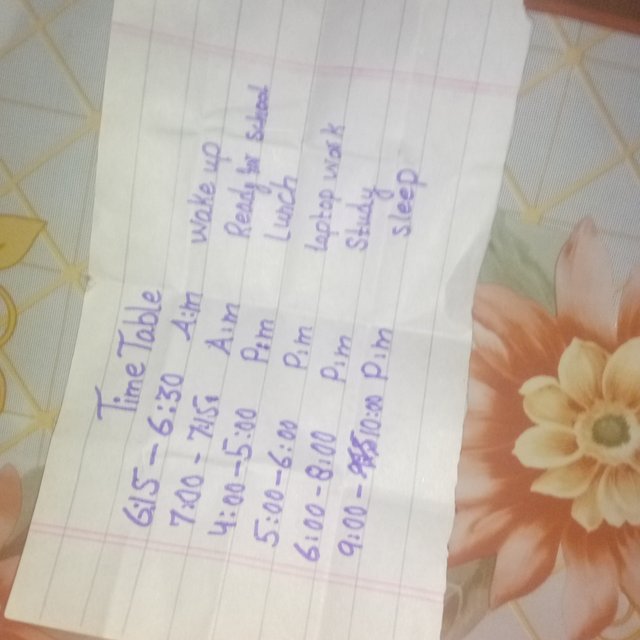 Time Table
615 – 6:30 A:m Wake up
7:00 - 7:15: A:m Ready for School
4:00-5:00 P:m Lunch
5:00-6:00 P:m laptop work
6:00-8:00 P:m Study
9:00 - 10:00 P:m sleep